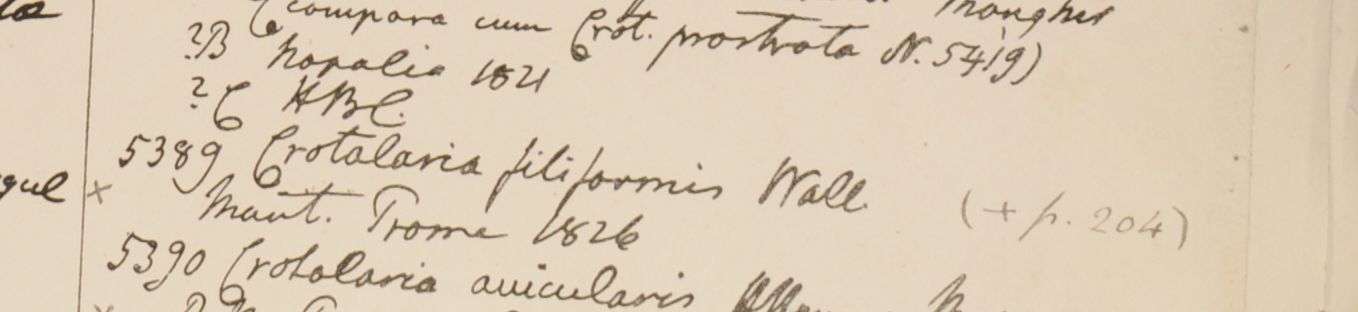 (compara cum Crot. prostrata N. 5419)
?B Nopalia 1821
?C HBC.
5389 Crotalaria filiformis Wall.
gul × Mont. Prome 1826 (+ p. 204)
5390 Crotalaria avicularis